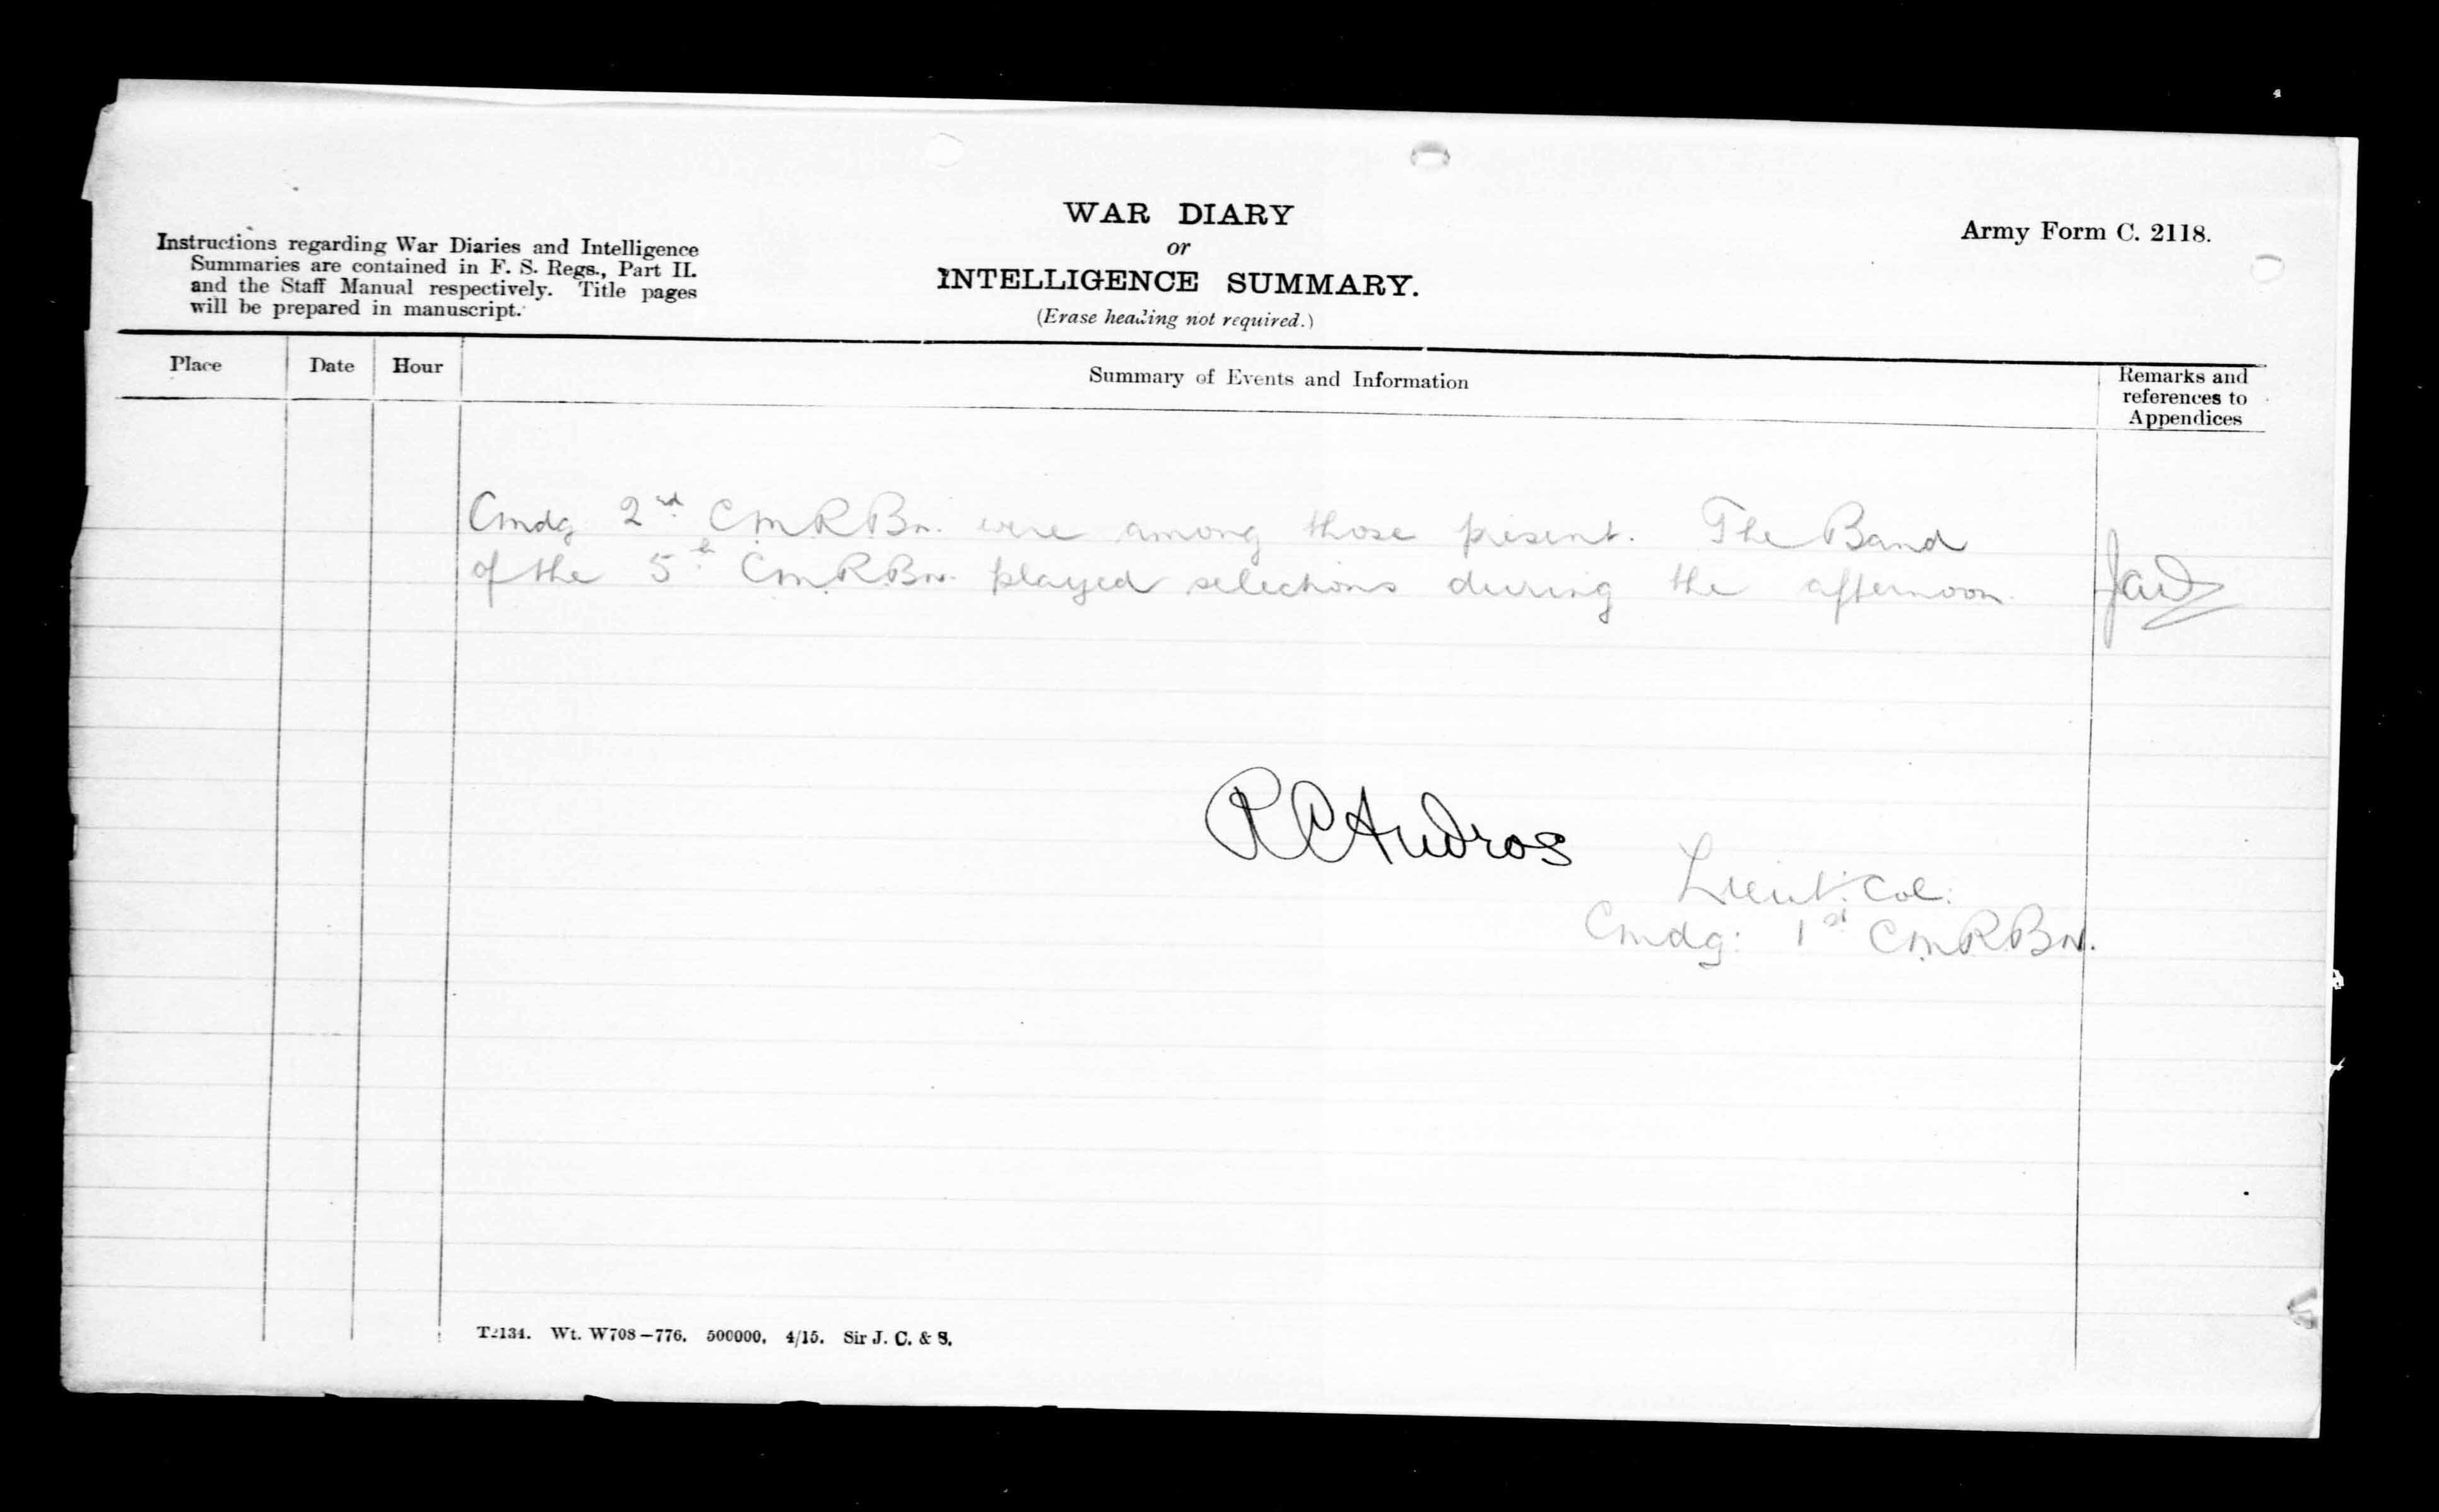 WAR DIARY
or
INTELLIGENCE SUMMARY.
(Erase heading not required.)
Army Form C. 2118.
Instructions regarding War Diaries and Intelligence
Summaries are contained in F. S. Regs., Part II.
and the Staff Manual respectively. Title pages
will be prepared in manuscript.
Place Date Hour Summary of Events and Information Remarks and
references to
Appendices
Cmdg 2nd C.M.R.Bn. were among those present. The Band
of the 5th C.M.R.Bn. played selections during the afternoon.
R C Andros
Lieut. Col.
Cmdg: 1st C.M.R.Bn.
T2134. Wt. W708—776. 500000. 4/15. Sir J. C. & S.